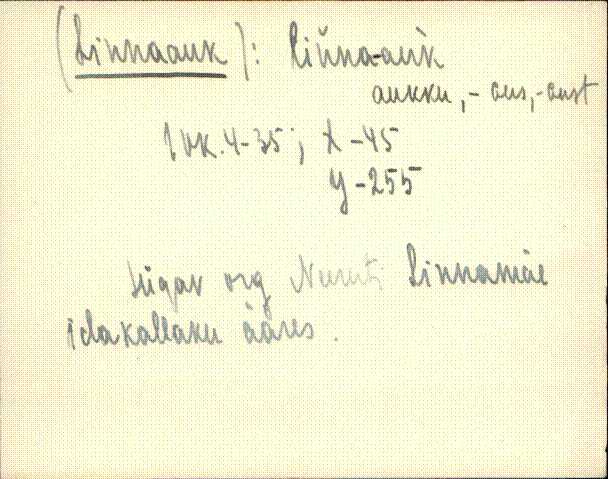 (Linnaauk): liǹna-aùk
aukku, -aus, -aust
1 vk. 4-35; x -45
y -255
sügav org Linnamäe
idakallaku ääres.